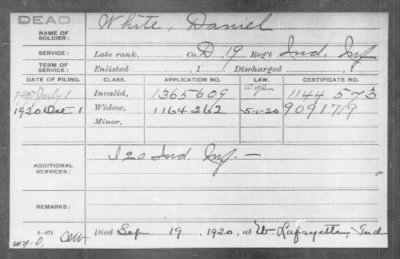 DEAD.
White, Daniel
NAME OF SOLDIER:
SERVICE: Late rank, Co. D, 19 Reg't Ind. Inf
TERM OF SERVICE: Enlisted , 1 Discharged , 1
DATE OF FILING. CLASS. APPLICATION NO. LAW. CERTIFICATE NO.
1907 July 1 Invalid, 1365609 1144573
1920 Oct 1 Widow, 1164262 5-1-20 909179
Minor,
ADDITIONAL SERVICES: I 20 Ind. Inf. —
REMARKS:
Died Sep 19, 1920, at W. Lafayette, Ind